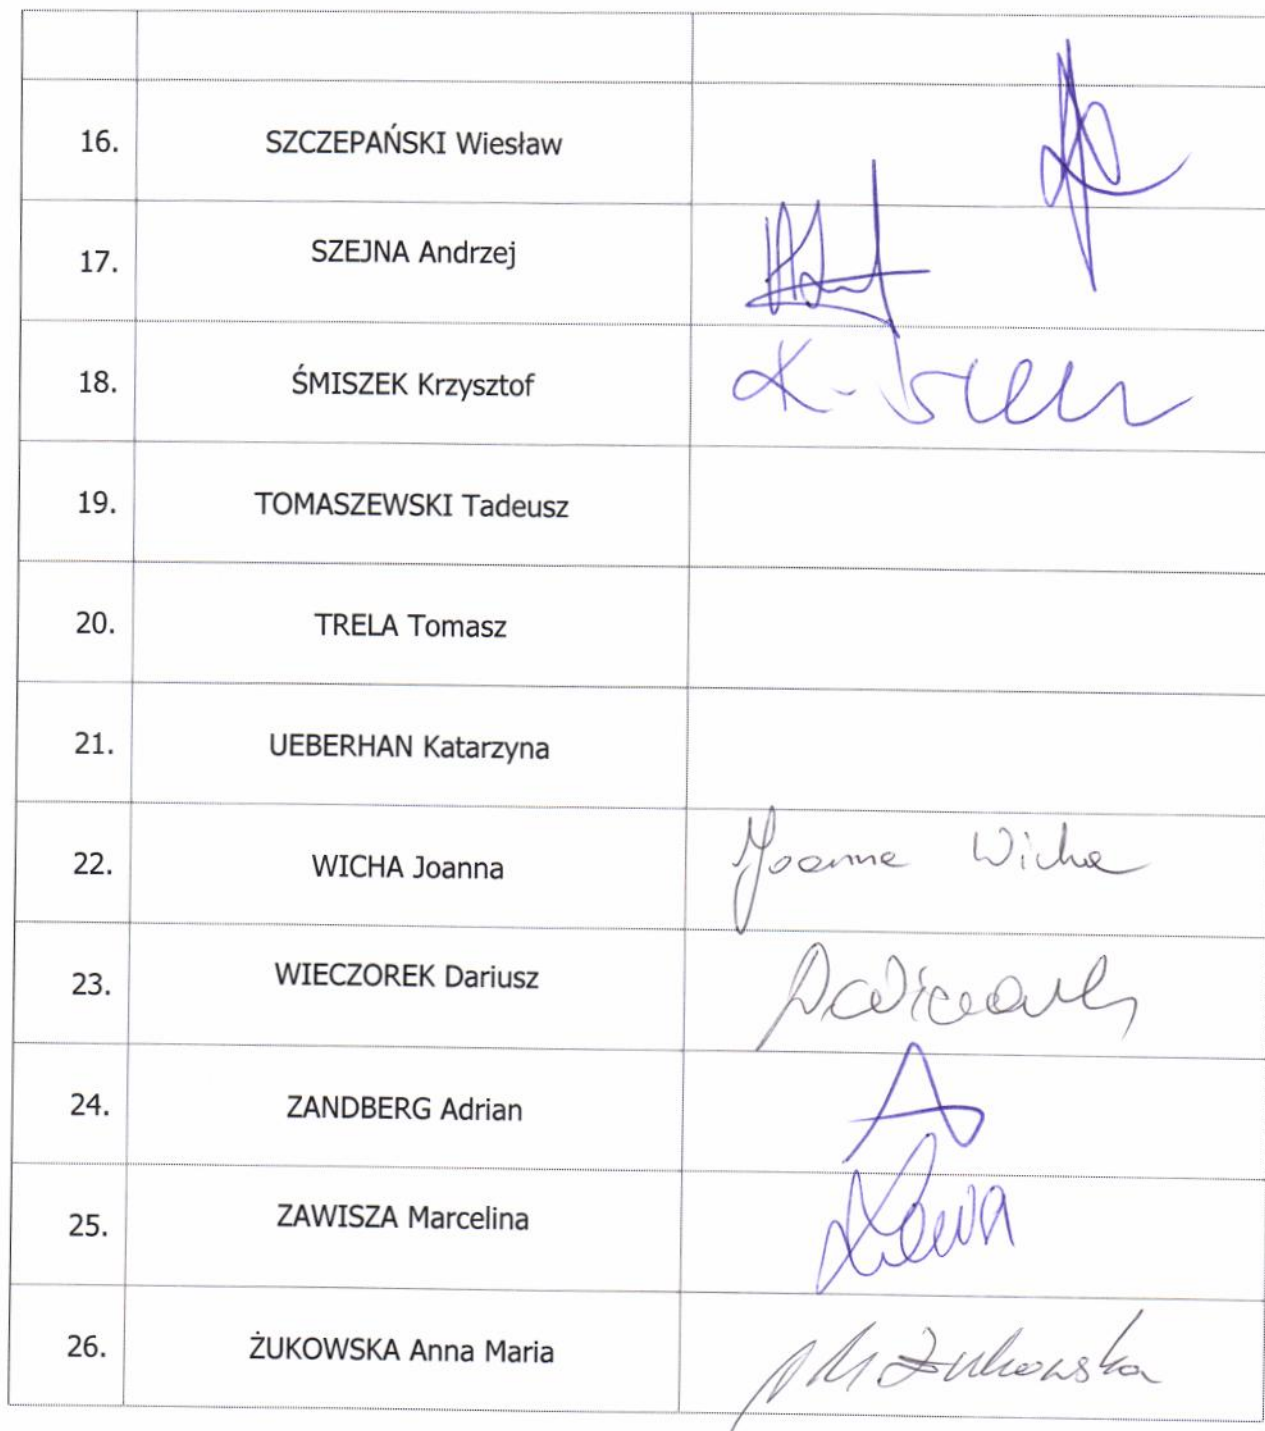 16. SZCZEPAŃSKI Wiesław
17. SZEJNA Andrzej
18. ŚMISZEK Krzysztof
19. TOMASZEWSKI Tadeusz
20. TRELA Tomasz
21. UEBERHAN Katarzyna
22. WICHA Joanna Joanna Wicha
23. WIECZOREK Dariusz
24. ZANDBERG Adrian
25. ZAWISZA Marcelina
26. ŻUKOWSKA Anna Maria Żukowska